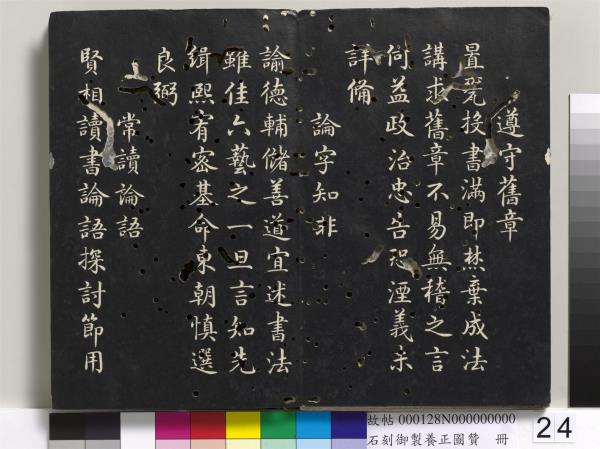 遵守舊章
置甕投書滿即焚棄成法
講求舊章不易無稽之言
何益政治忠告恐湮義采
詳備
論字知非
諭德輔儲善道宜述書法
雖佳六藝之一旦言知先
緝熙宥密基命東朝慎選
良弼
常讀論語
賢相讀書論語探討節用
故帖 000128N000000000
石刻御製養正圖贊 冊
24